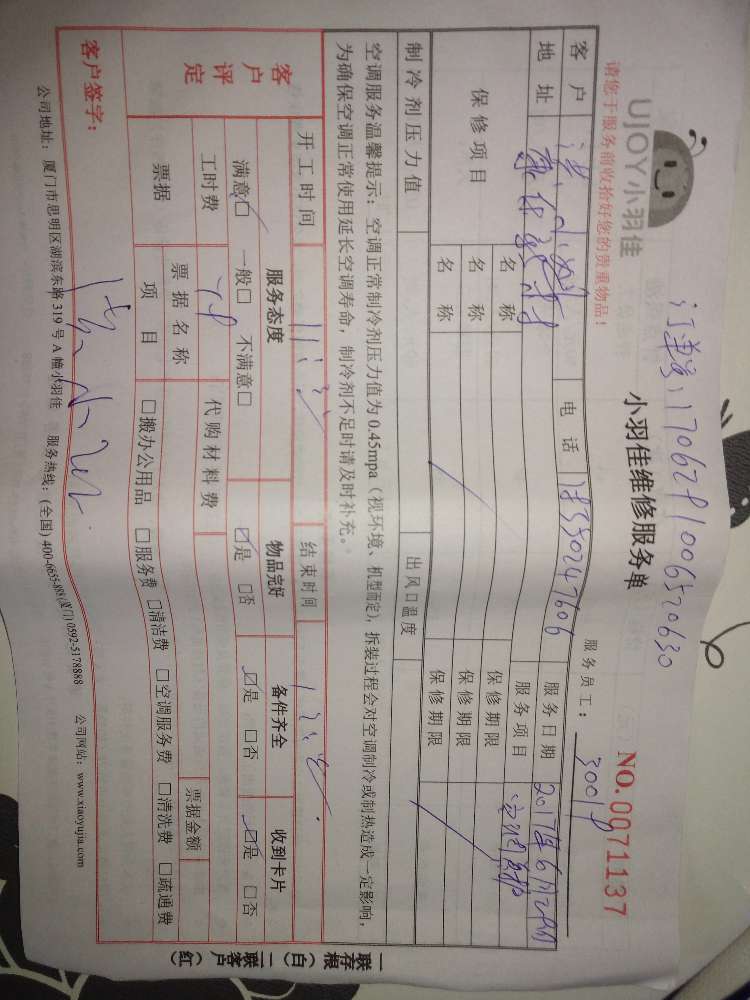 UJOY小羽佳
小羽佳维修服务单
NO.0071137
请您于服务前收拾好您的贵重物品!
服务员工:
客户
电话
服务日期 2017年6月29日
地址
服务项目
保修项目
名称
保修期限
名称
保修期限
名称
保修期限
制冷剂压力值
出风口温度
空调服务温馨提示:空调正常制冷剂压力值为0.45mpa(视环境、机型而定),拆装过程会对空调制冷或制热造成一定影响,
为确保空调正常使用延长空调寿命,制冷剂不足时请及时补充。
开工时间
结束时间
客户评定
服务态度
物品完好
备件齐全
收到卡片
满意☑ 一般□ 不满意□
☑是 □否
☑是 □否
☑是 □否
工时费
代购材料费
票据
票据名称
票据金额
项目
□搬办公用品 □服务费 □清洁费 □空调服务费 □清洗费 □疏通费
客户签字:
公司地址:厦门市思明区湖滨东路319号A幢小羽佳 服务热线:(全国)400-6655-888(厦门)0592-5178888 公司网站:www.xiaoyujia.com
一联存根(白) 二联客户(红)